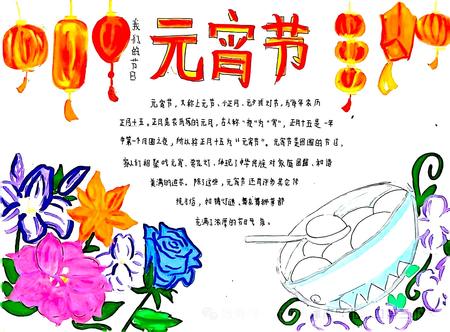 我们的节日
元宵节
元宵节，又称上元节、小正月、元夕或灯节，为每年农历
正月十五。正月是农历的元月，古人称"夜"为"宵"，正月十五是一年
中第一个月圆之夜，所以称正月十五为"元宵节"。元宵节是团圆的节日，
家人们相聚吃元宵、赏花灯，体现了中华民族对家庭团圆、和谐
美满的追求。除了这些，元宵节还有许多民俗
舞龙舞狮等都
充满了浓厚的节日气氛。